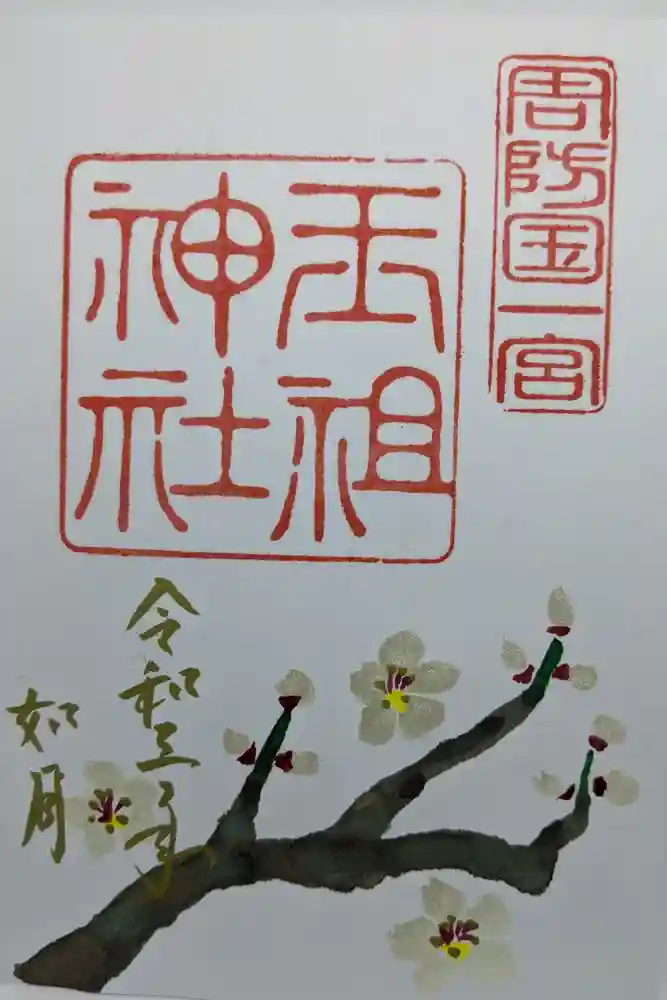 周防国一宮
玉祖
神社
令和三年
如月